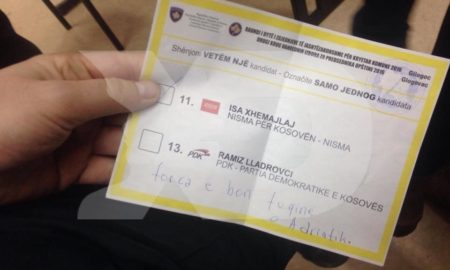 RAUNDI I DYTË I ZGJEDHJEVE TË JASHTËZAKONSHME PËR KRYETAR KOMUNE 2016
DRUGI KRUG VANREDNIH IZBORA ZA PREDSEDNIKA OPŠTINE 2016
Gllogoc
Glogovac
Shënjoni VETËM NJË kandidat - Označite SAMO JEDNOG kandidata
11. ISA XHEMAJLAJ
NISMA PËR KOSOVËN - NISMA
13. PDK RAMIZ LLADROVCI
PDK - PARTIA DEMOKRATIKE E KOSOVËS
força e bon fuqinë
e Adriatik.